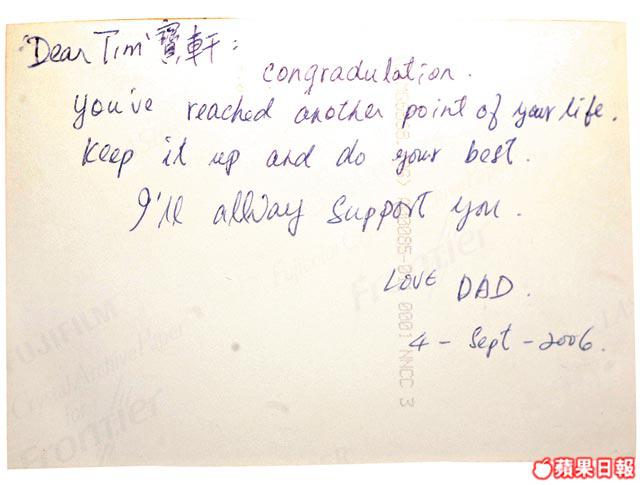 "Dear Tim" 寶軒:
congradulation.
You've reached another point of your life.
Keep it up and do your best.
I'll allway support you.
LOVE DAD.
4 - Sept - 2006.
0001 NNCC 3
FUJIFILM
Crystal Archive Paper
for
Frontier
蘋果日報